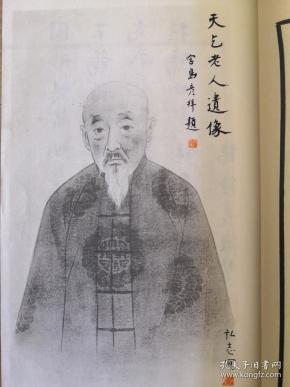 天乞老人遺像
宮島彥擇題
私志画
孔夫子旧书网